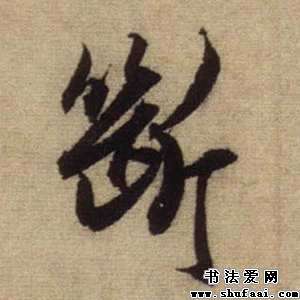 斷
书法爱网
www.shufaai.com